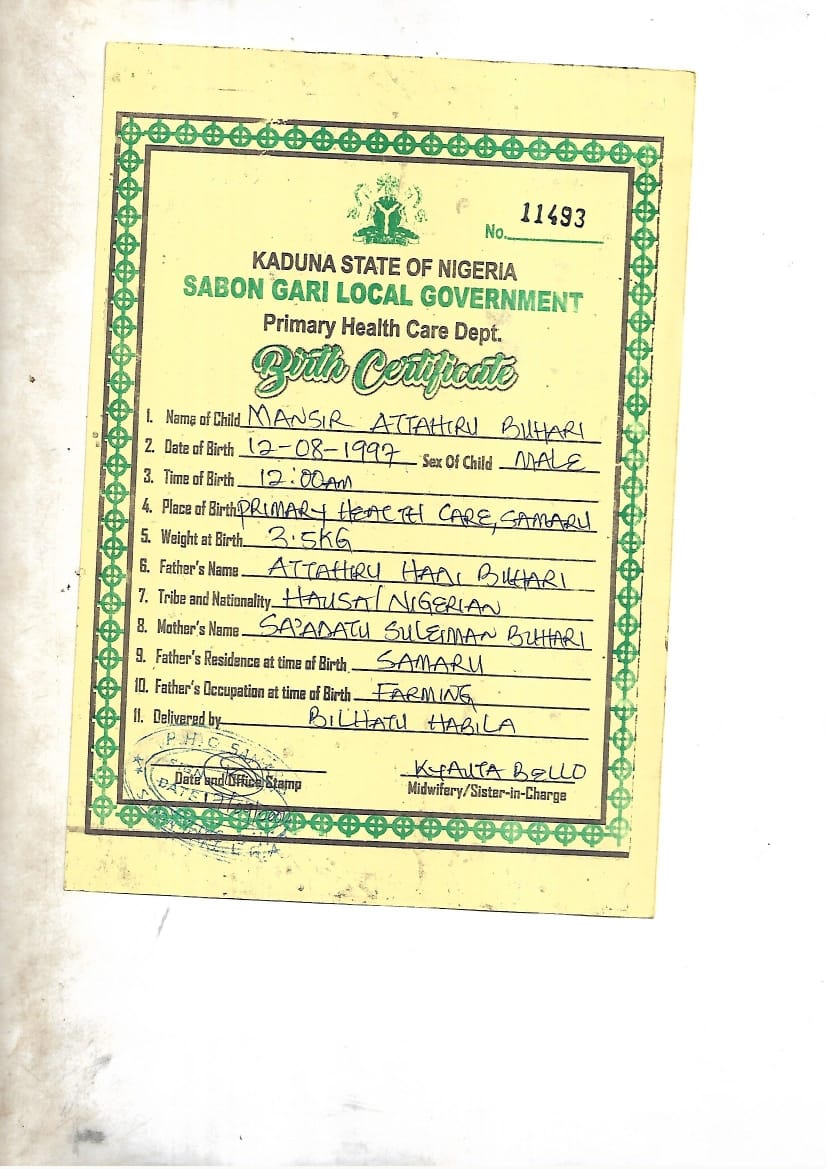 No. 11493
KADUNA STATE OF NIGERIA
SABON GARI LOCAL GOVERNMENT
Primary Health Care Dept.
Birth Certificate
1. Name of Child MANSIR ATTAHIRU BUHARI
2. Date of Birth 12-08-1997 Sex Of Child MALE
3. Time of Birth 12:00AM
4. Place of Birth PRIMARY HEALTH CARE, SAMARU
5. Weight at Birth 3.5KG
6. Father's Name ATTAHIRU HADI BUHARI
7. Tribe and Nationality HAUSA/NIGERIAN
8. Mother's Name SA'ADATU SULEIMAN BUHARI
9. Father's Residence at time of Birth SAMARU
10. Father's Occupation at time of Birth FARMING
11. Delivered by BILHATU HABILA
P.H.C
DATE
Date and Office Stamp
L.G.A
KYAUTA BELLO
Midwifery/Sister-in-Charge